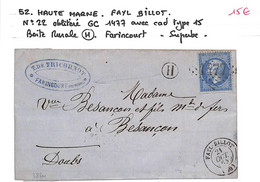 52. HAUTE MARNE. FAYL BILLOT. 15€
N° 22 oblitéré GC 1477 avec cad type 15
Boite Rurale (H) Farincourt - Superbe.
T. DE TRICORNOT
FARINCOURT
H
Madame
Veuve Besançon et fils
à Besançon
Doubs
FAYL-BILLOT
21